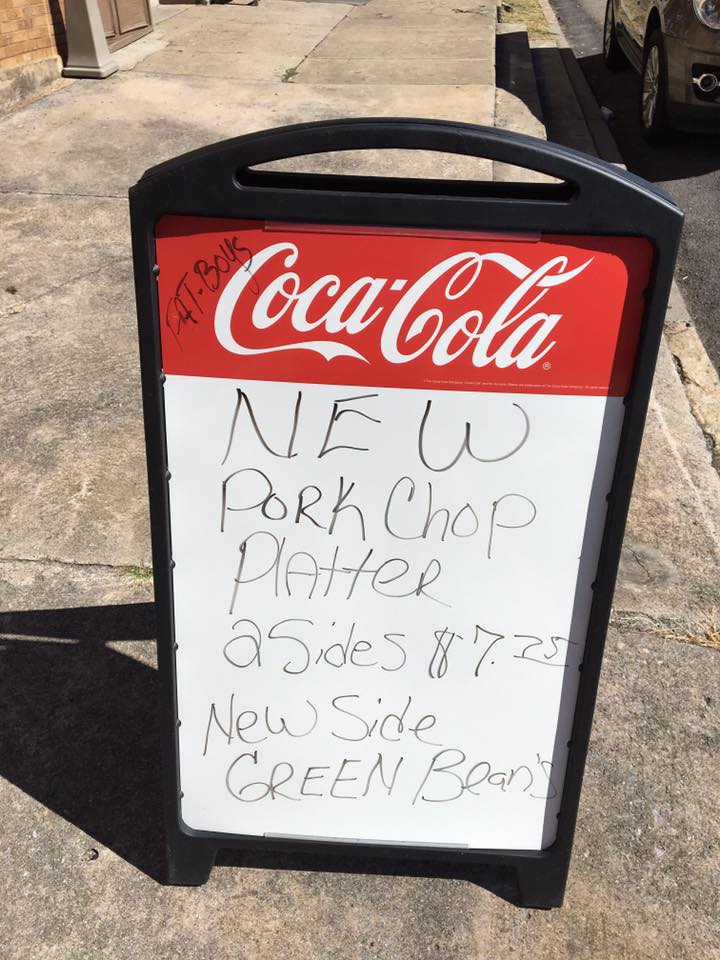 FAT-BOYS
Coca-Cola
NEW
PORK Chop
PlAtteR
2 Sides $7.25
New Side
GREEN Bean's